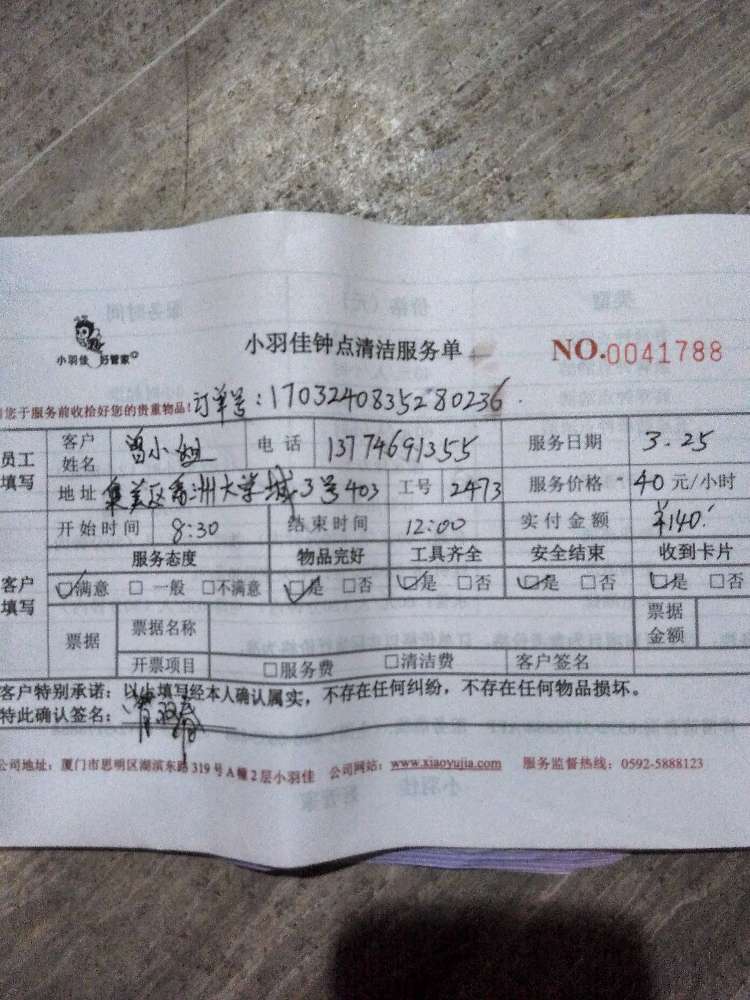 小羽佳 好管家
小羽佳钟点清洁服务单
NO.0041788
您于服务前收拾好您的贵重物品! 订单号:1703240835280236.
员工填写 客户姓名 曾小姐 电话 13774691355 服务日期 3.25
地址 集美区 洲大学城3号403 工号 2473 服务价格 40 元/小时
开始时间 8:30 结束时间 12:00 实付金额 ¥140.
客户填写 服务态度 物品完好 工具齐全 安全结束 收到卡片
☑满意 □一般 □不满意 ☑是 □否 ☑是 □否 ☑是 □否 ☑是 □否
票据 票据名称 票据金额
开票项目 □服务费 □清洁费 客户签名
客户特别承诺:以上填写经本人确认属实,不存在任何纠纷,不存在任何物品损坏。
特此确认签名:
公司地址:厦门市思明区湖滨东路319号A幢2层小羽佳 公司网站:www.xiaoyujia.com 服务监督热线:0592-5888123